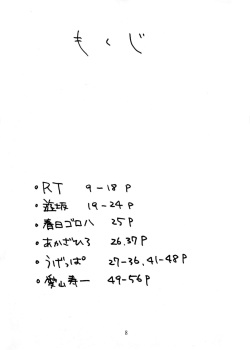 もくじ
・RT 9-18P
・遊坂 19-24P
・春日ゴロハ 25P
・あかざひろ 26.37P
・うげっぱ° 27-36,41-48P
・愛山寿一 49-56P
8